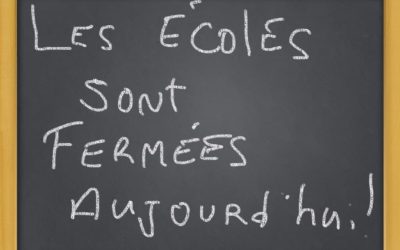 LES ÉCOLES
SONT
FERMÉES
AUJOURD'hui!